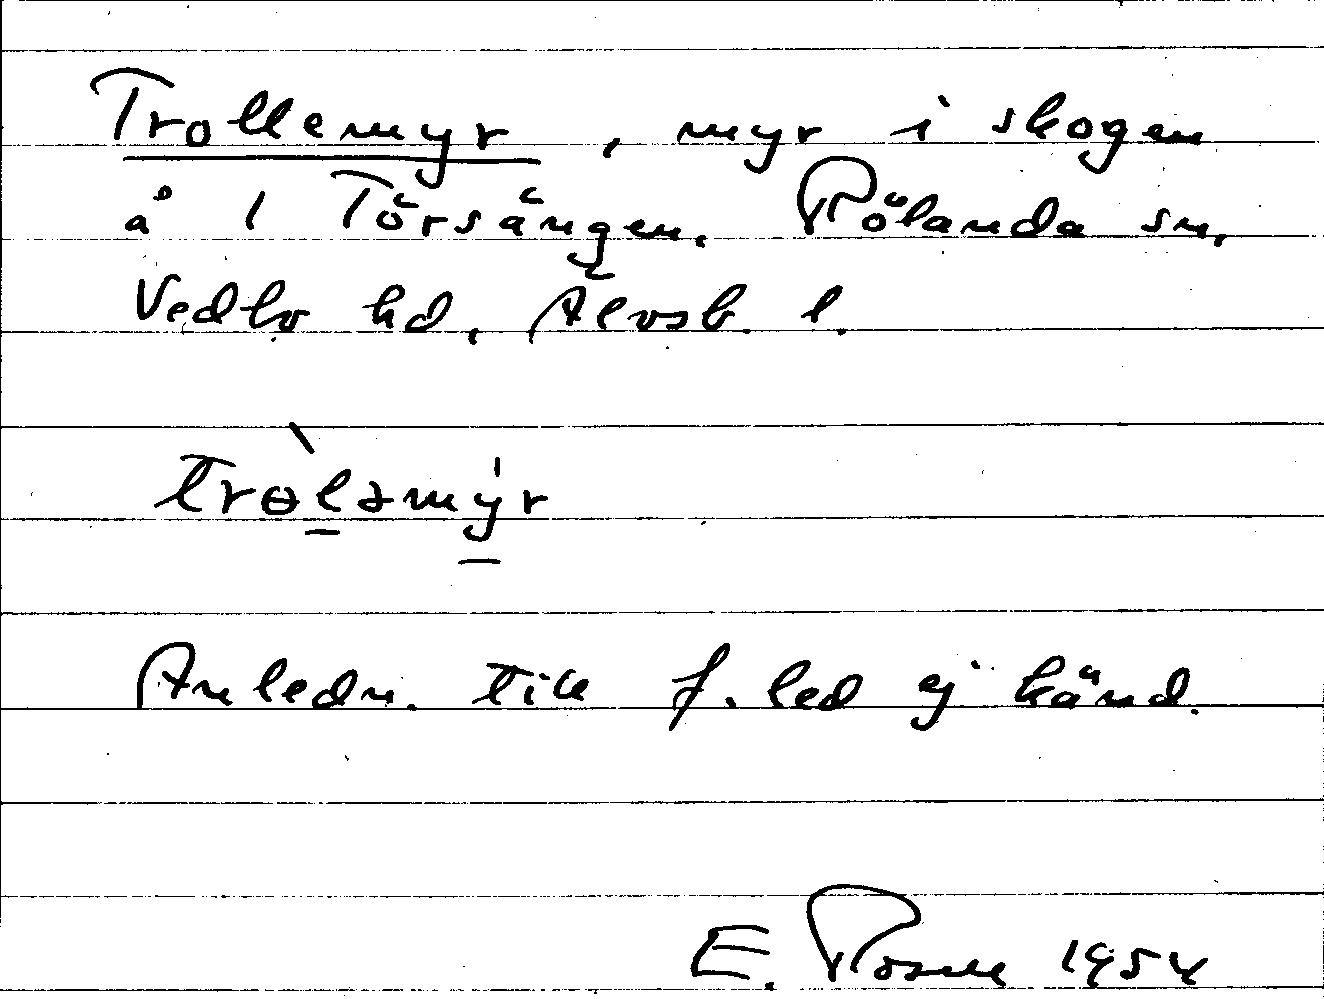 Trollemyr, myr i skogen
å 1 Törsängen. Rölanda sn,
Vedbo hd, Älvsb. l.
trɵ̀lǝmýr
Anledn. till f. led ej känd.
E. Rosell 1954